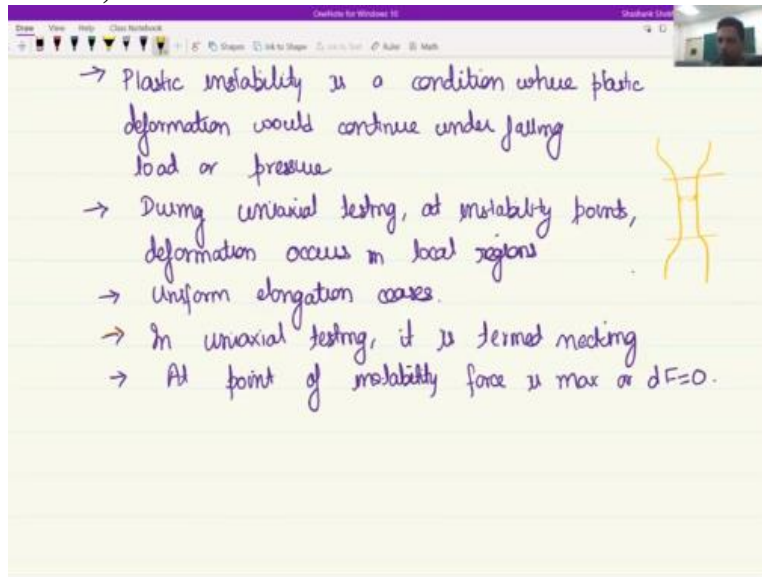 OneNote for Windows 10
Draw View Help Class Notebook
Shapes Ink to Shape Ruler Math
→ Plastic instability is a condition where plastic
deformation would continue under falling
load or pressure
→ During uniaxial testing, at instability points,
deformation occurs in local regions
→ Uniform elongation ceases.
→ In uniaxial testing, it is termed necking
→ At point of instability force is max or dF=0.